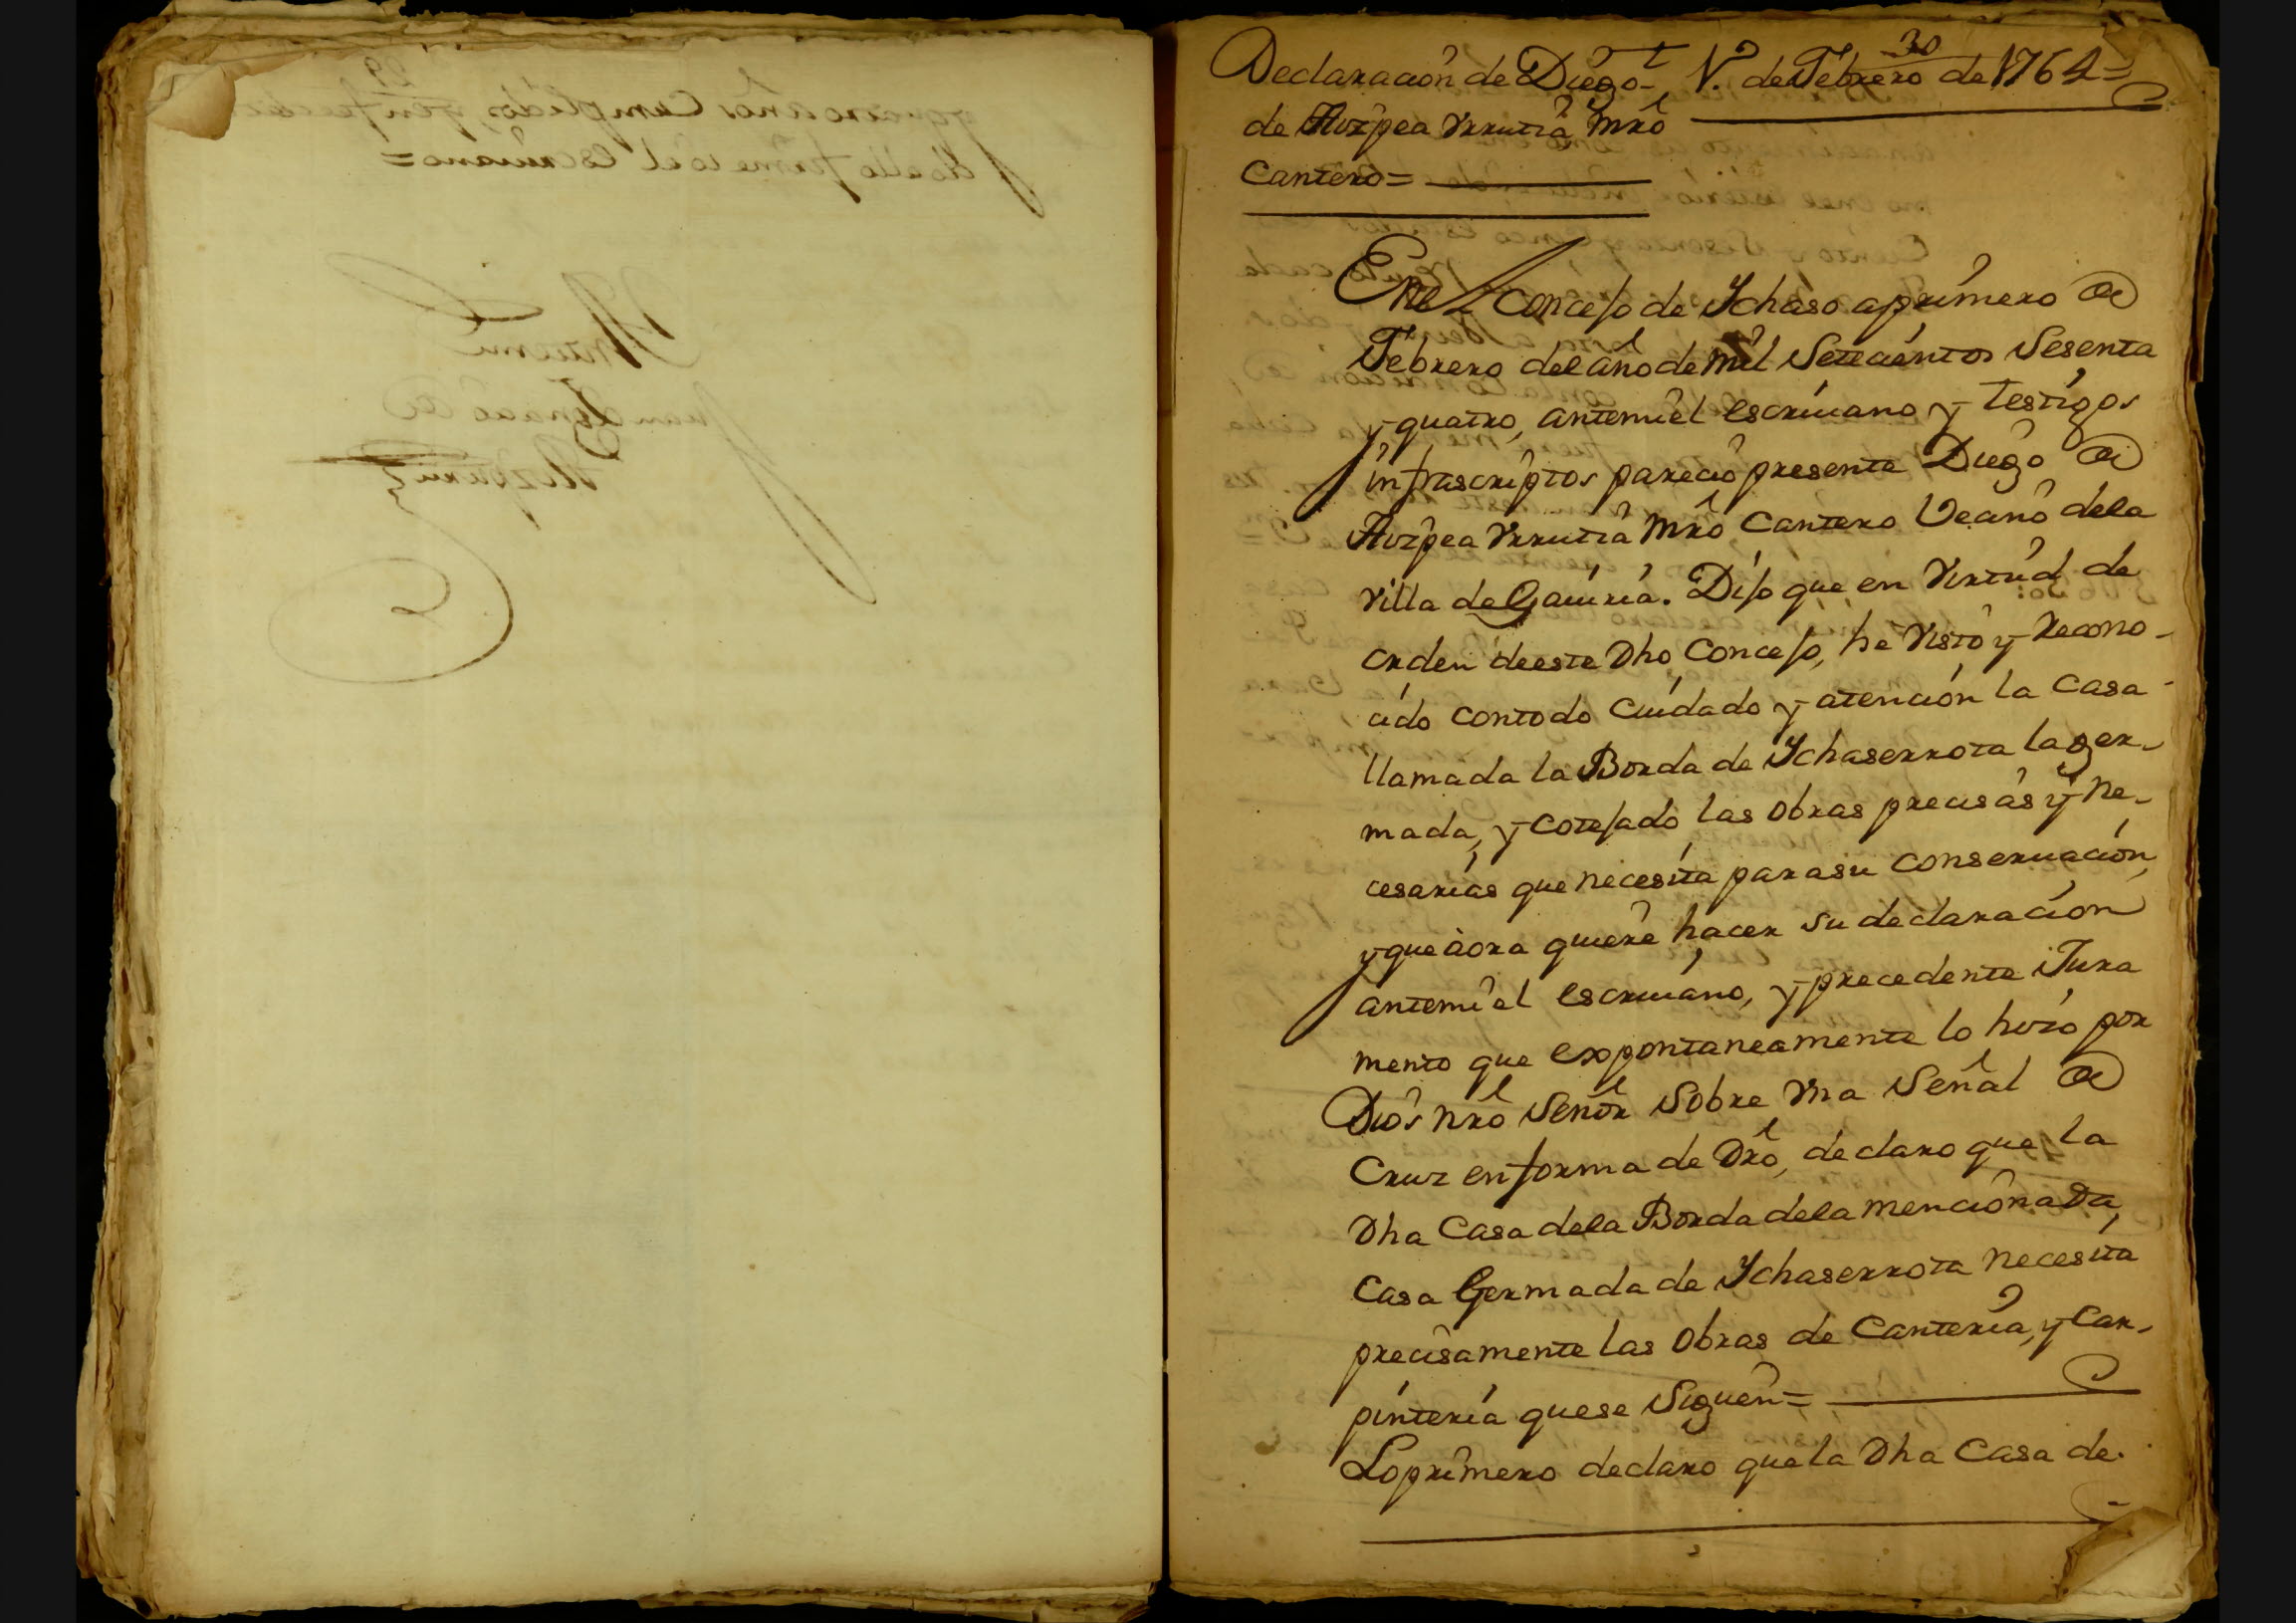 30
Declaracion de Diego
de Aizpea Vrrutia Mrô
Cantero=
1.º de Febrero de 1764=
En el Concejo de Ychaso a primero de
Febrero del año de mil Setecientos Sesenta
y quatro, antemi el escriuano y testigos
infrascriptos pareció presente Diego de
Aizpea Vrrutia Mrô Cantero Vecino dela
Villa de Gauiria. Dijo que en Virtud de
orden deeste Dho Concejo, he Visto y Recono-
cido contodo Cuidado y atención la Casa
llamada la Borda de Ychaserrota la ger-
mada, y cotejado las obras precisas y ne-
cesarias que necesita parasu Conseruación,
y que àora quiere hacer su declaración
antemi el escriuano, y precedente Jura
mento que expontaneamente lo hizo por
Dios nrô Señor Sobre Vna Señal de
Cruz en forma de Drô, declaro que la
Dha Casa dela Borda dela mencionada
Casa Germada de Ychaserrota necesita
precisamente las Obras de Cantería, y Car-
pintería quese Siguen=
Lo primero declaro que la Dha Casa de